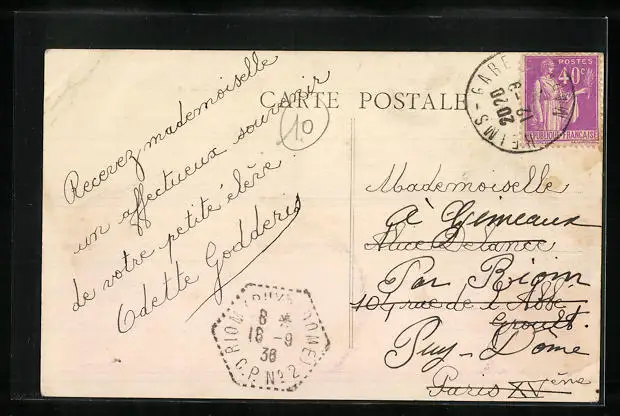 CARTE POSTALE
10
Recevez mademoiselle
un affectueux souvenir
de votre petite élève.
Odette Godderis
REIMS-GARE
2020
12-9
POSTES
40c
REPUBLIQUE FRANÇAISE
Mademoiselle
à Gimeaux
Alice Delance
Par Riom
104 rue de l'Abbé
Groult.
Puy-Dôme
Paris XVème
RIOM (PUY DE DOME)
8 *
16-9
36
C.P. No 2